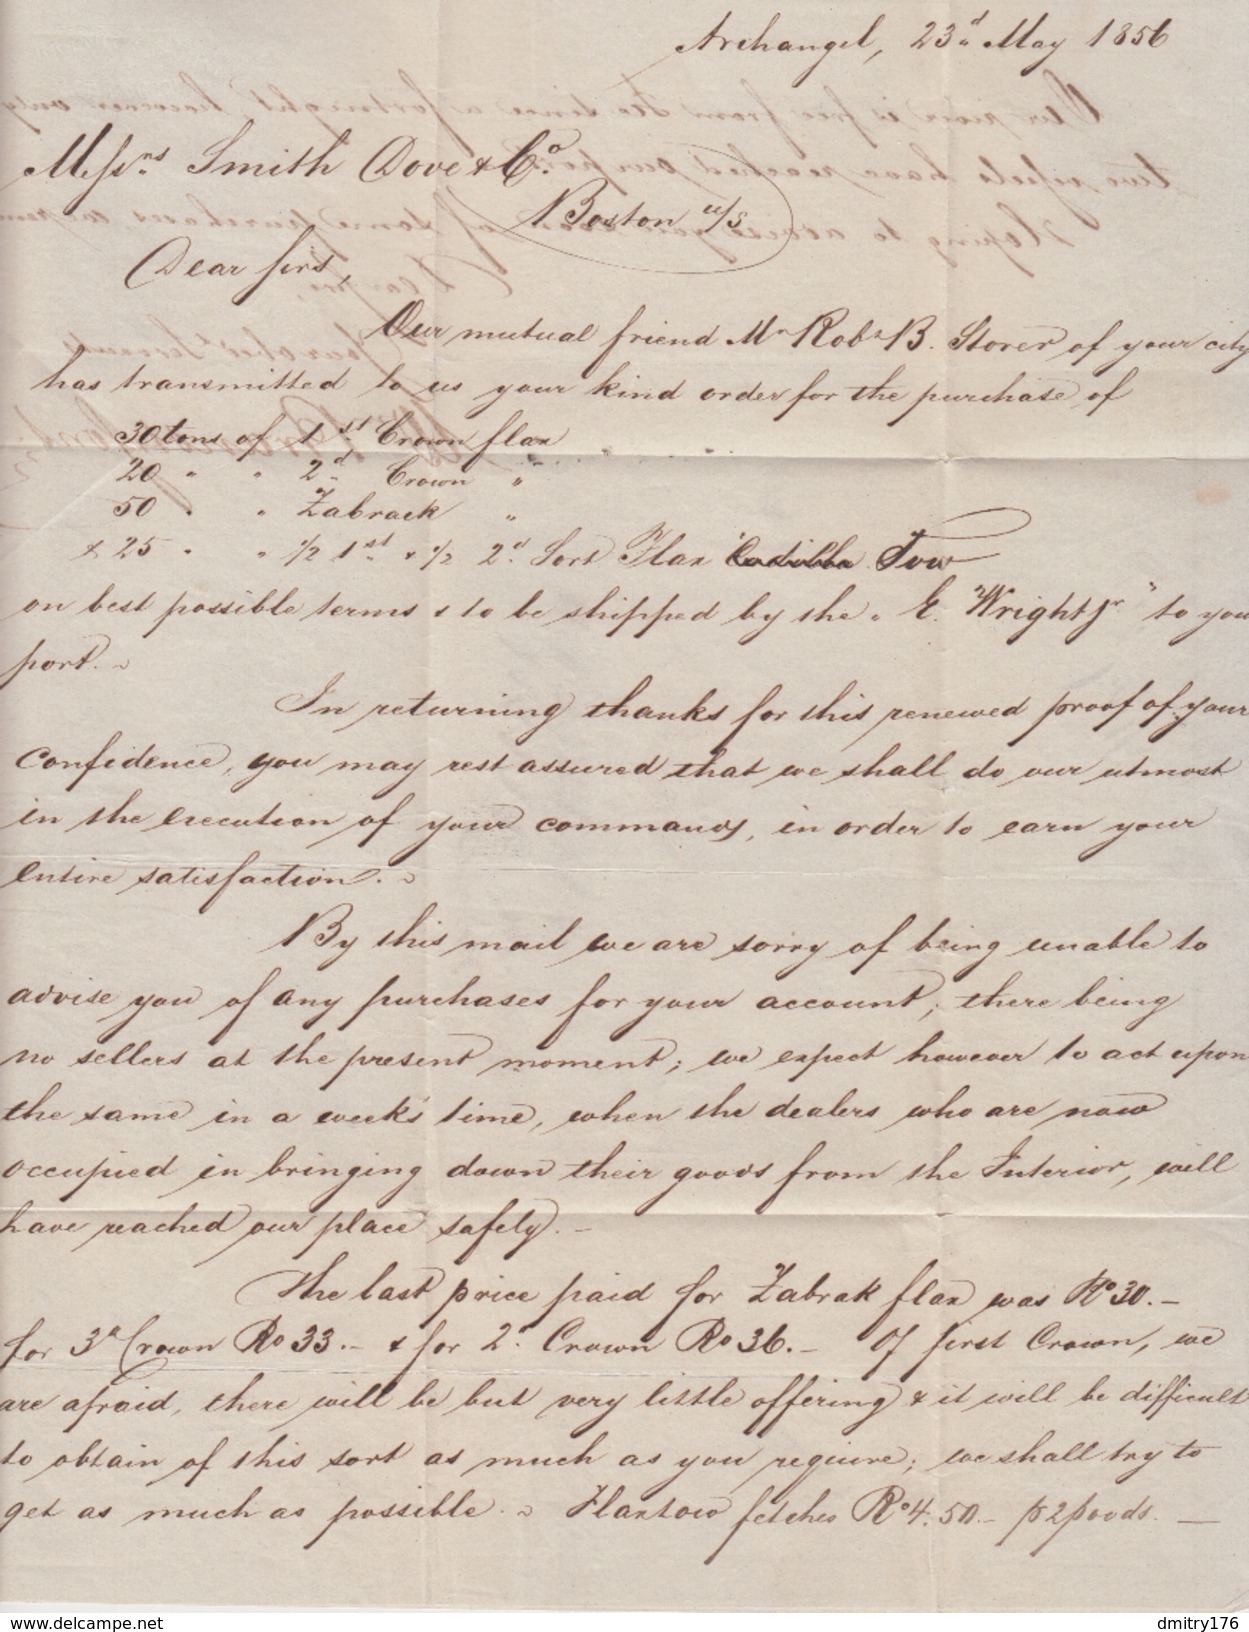 Archangel, 23d May 1856
Messrs Smith Dove & Co.
Boston u/s
Dear Sirs,
Our mutual friend Mr Robt B. Storer of your city
has transmitted to us your kind order for the purchase of
30 tons of 1st Crown flax
20 " " 2d Crown "
50 " " Zabrack "
& 25 " " 1/2 1st & 1/2 2d Sort Flax Codilla Tow
on best possible terms & to be shipped by the "E. Wright Jr" to your
port.
In returning thanks for this renewed proof of your
confidence, you may rest assured that we shall do our utmost
in the execution of your commands, in order to earn your
entire satisfaction.
By this mail we are sorry of being unable to
advise you of any purchases for your account, there being
no sellers at the present moment; we expect however to act upon
the same in a week's time, when the dealers who are now
occupied in bringing down their goods from the Interior, will
have reached our place safely. –
The last price paid for Zabrak flax was Ro 30. –
for 3d Crown Ro 33. – & for 2d Crown Ro 36. – Of first Crown, we
are afraid, there will be but very little offering & it will be difficult
to obtain of this sort as much as you require; we shall try to
get as much as possible. Flaxtow fetches Ro 4.50. – p 2 poods. —
delcampe.net
dmitry176